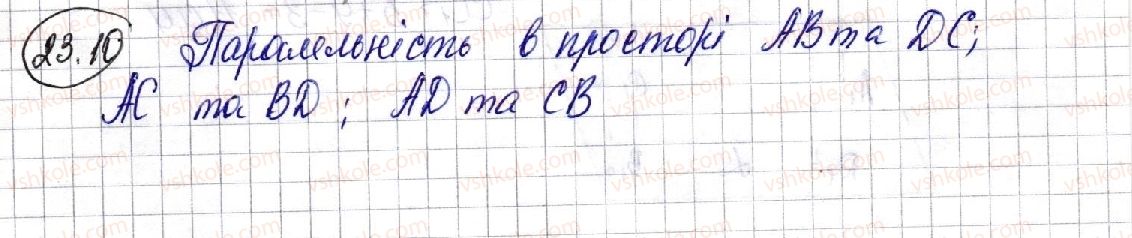 23.10 Паралельність в просторі AB та DC;
AC та BD; AD та CB